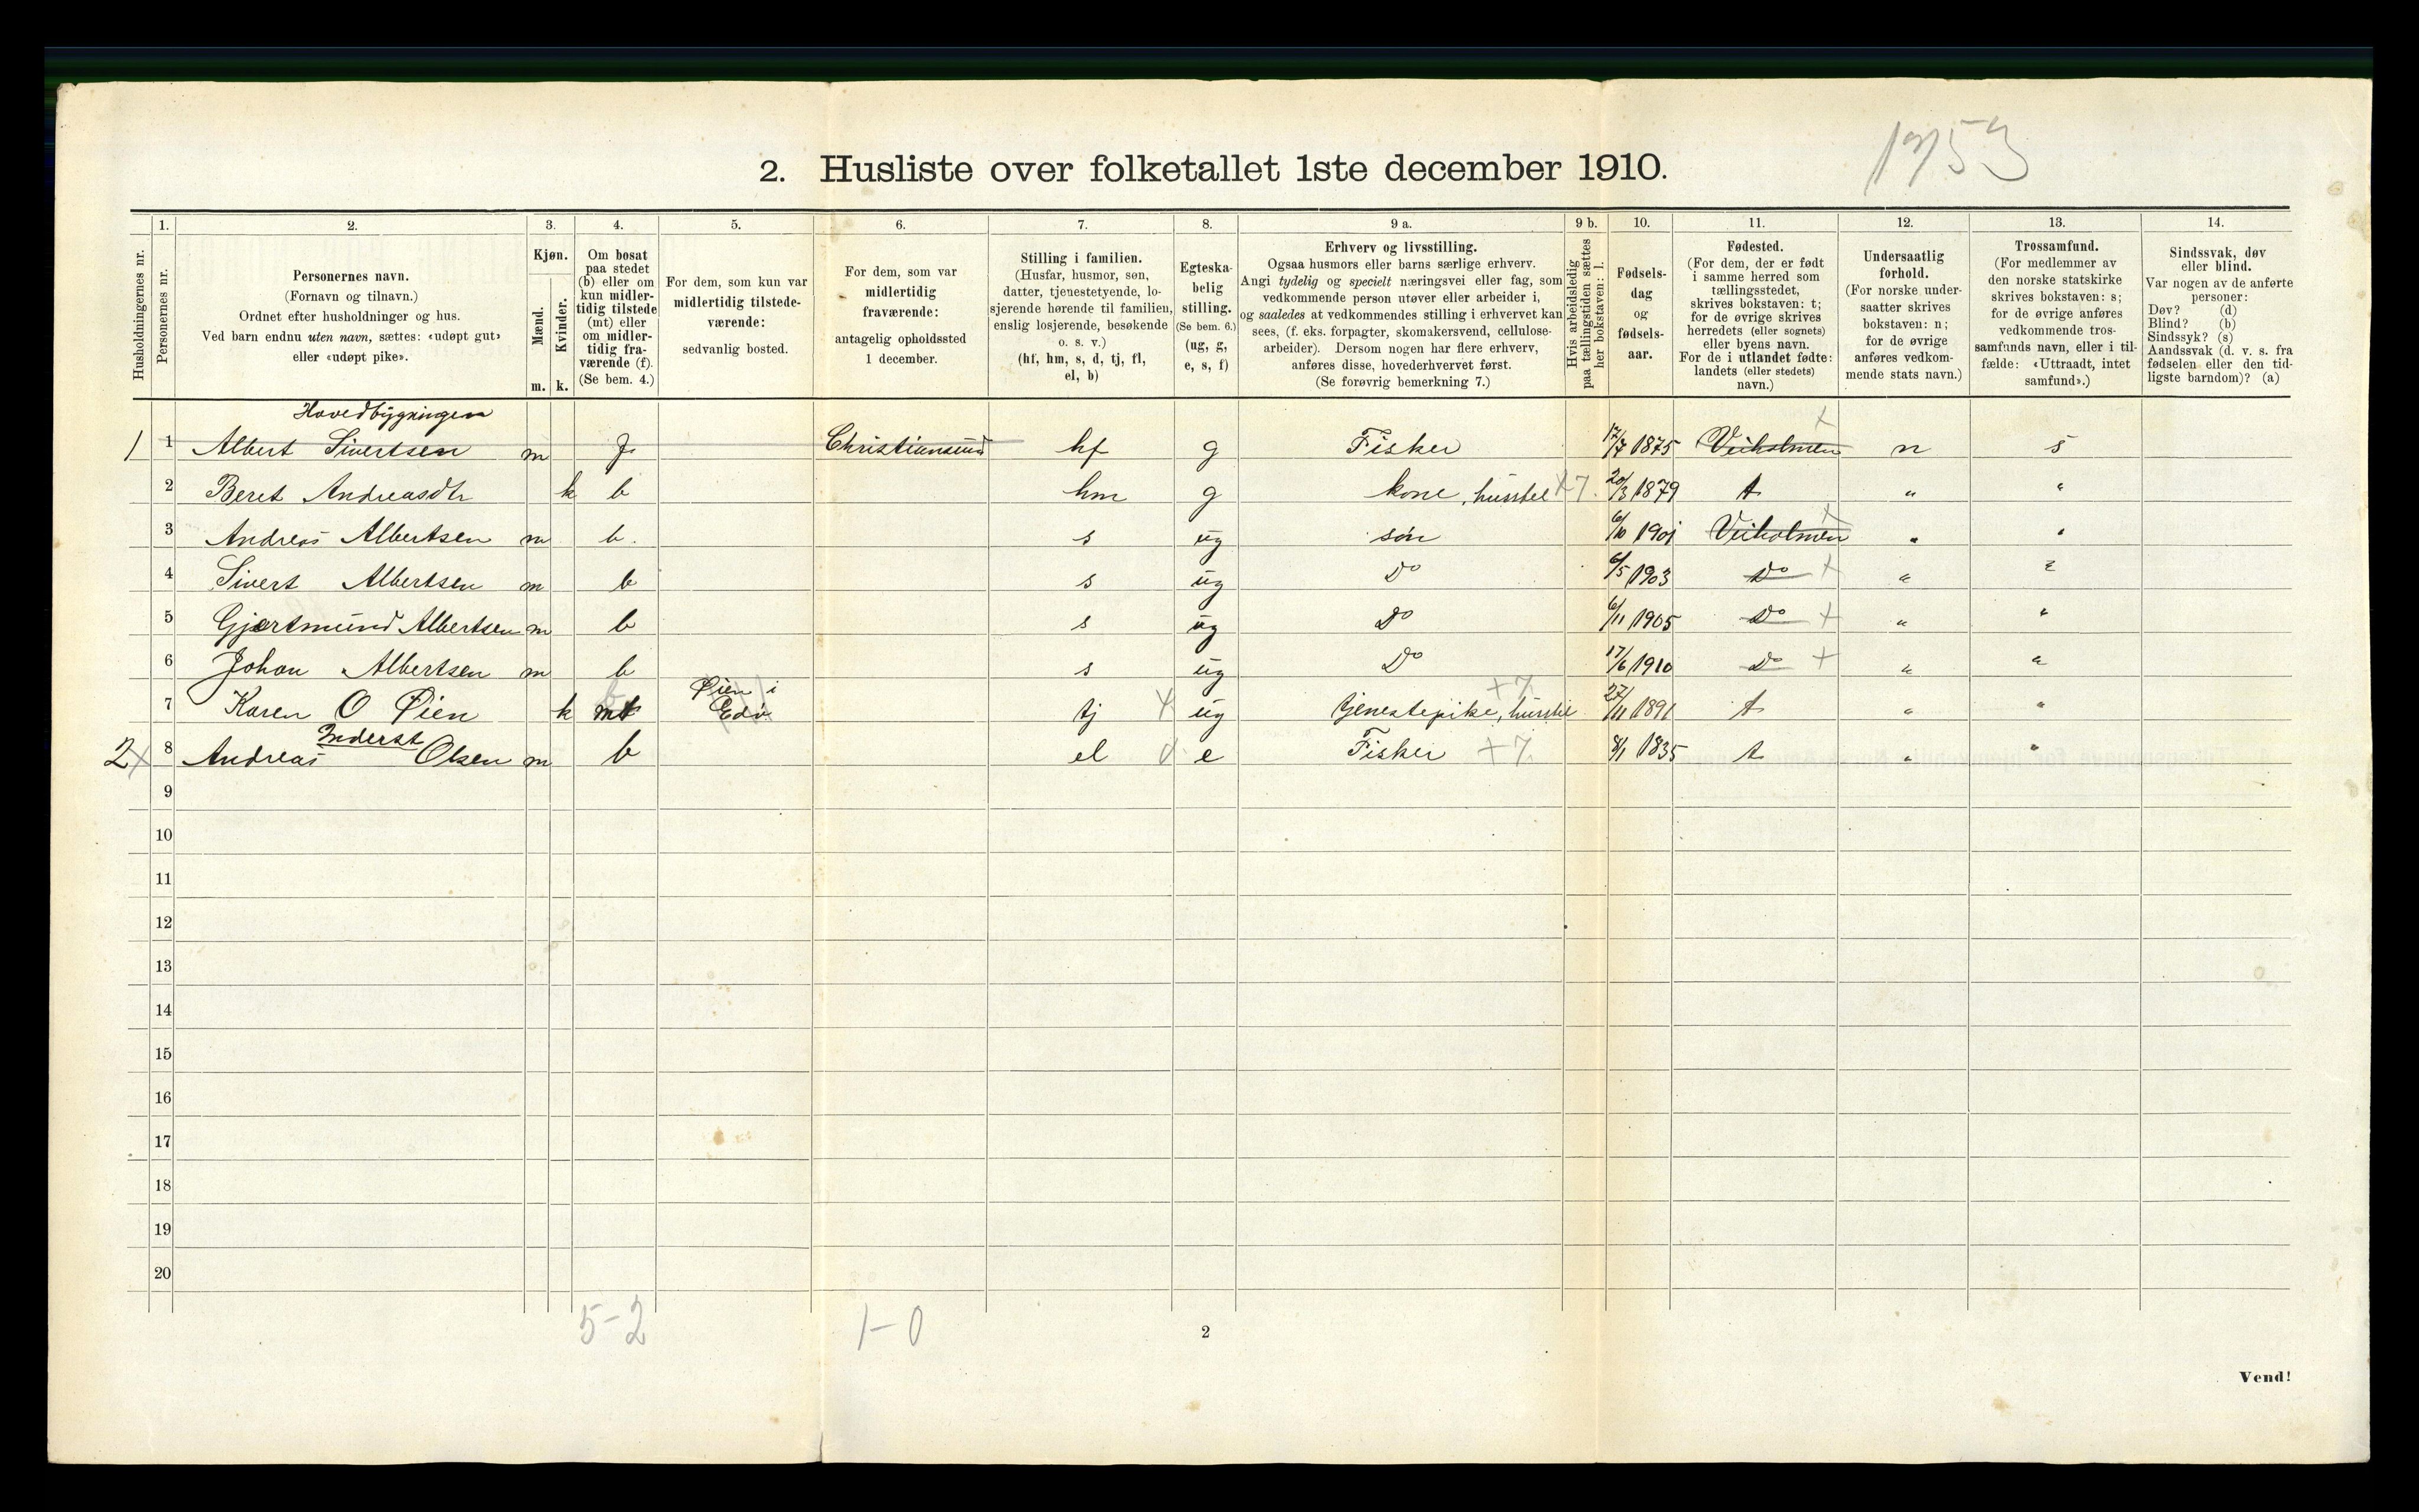 1753
2. Husliste over folketallet 1ste december 1910.
Husholdningernes nr.
1.
Personernes nr.
2.
Personernes navn.
(Fornavn og tilnavn.)
Ordnet efter husholdninger og hus.
Ved barn endnu uten navn, sættes: «udøpt gut»
eller «udøpt pike».
3.
Kjøn.
Mænd.
m.
Kvinder.
k.
4.
Om bosat
paa stedet
(b) eller om
kun midler-
tidig tilstede
(mt) eller
om midler-
tidig fra-
værende (f).
(Se bem. 4.)
5.
For dem, som kun var
midlertidig tilstede-
værende:
sedvanlig bosted.
6.
For dem, som var
midlertidig
fraværende:
antagelig opholdssted
1 december.
7.
Stilling i familien.
(Husfar, husmor, søn,
datter, tjenestetyende, lo-
sjerende hørende til familien,
enslig losjerende, besøkende
o. s. v.)
(hf, hm, s, d, tj, fl,
el, b)
8.
Egteska-
belig
stilling.
(Se bem. 6.)
(ug, g,
e, s, f)
9 a.
Erhverv og livsstilling.
Ogsaa husmors eller barns særlige erhverv.
Angi tydelig og specielt næringsvei eller fag, som
vedkommende person utøver eller arbeider i,
og saaledes at vedkommendes stilling i erhvervet kan
sees, (f. eks. forpagter, skomakersvend, cellulose-
arbeider). Dersom nogen har flere erhverv,
anføres disse, hovederhvervet først.
(Se forøvrig bemerkning 7.)
9 b.
Hvis arbeidsledig
paa tællingstiden sættes
her bokstaven: l.
10.
Fødsels-
dag
og
fødsels-
aar.
11.
Fødested.
(For dem, der er født
i samme herred som
tællingsstedet,
skrives bokstaven: t;
for de øvrige skrives
herredets (eller sognets)
eller byens navn.
For de i utlandet fødte:
landets (eller stedets)
navn.)
12.
Undersaatlig
forhold.
(For norske under-
saatter skrives
bokstaven: n;
for de øvrige
anføres vedkom-
mende stats navn.)
13.
Trossamfund.
(For medlemmer av
den norske statskirke
skrives bokstaven: s;
for de øvrige anføres
vedkommende tros-
samfunds navn, eller i til-
fælde: «Uttraadt, intet
samfund».)
14.
Sindssvak, døv
eller blind.
Var nogen av de anførte
personer:
Døv? (d)
Blind? (b)
Sindssyk? (s)
Aandssvak (d. v. s. fra
fødselen eller den tid-
ligste barndom)? (a)
Hovedbygningen
1 1 Albert Sivertsen m f Christiansund hf g Fisker 17/7 1875 Veiholmen n s
2 Beret Andreasdtr k b hm g kone, husstel +7 20/3 1879 t " "
3 Andreas Albertsen m b. s ug søn 6/10 1901 Veiholmen " "
4 Sivert Albertsen m b s ug Do 6/5 1903 Do + " "
5 Gjertmund Albertsen m b s ug Do 6/11 1905 Do + " "
6 Johan Albertsen m b s ug Do 17/6 1910 Do + " "
Øien i
7 Karen O Øien k mt Edø tj ug tjenestepike, husstel +7 27/11 1891 t " "
Inderst
2 8 Andreas Olsen m b el e Fisker +7 8/1 1835 t " "
9
10
11
12
13
14
15
16
17
18
19
20
5-2 1-0
2
Vend!